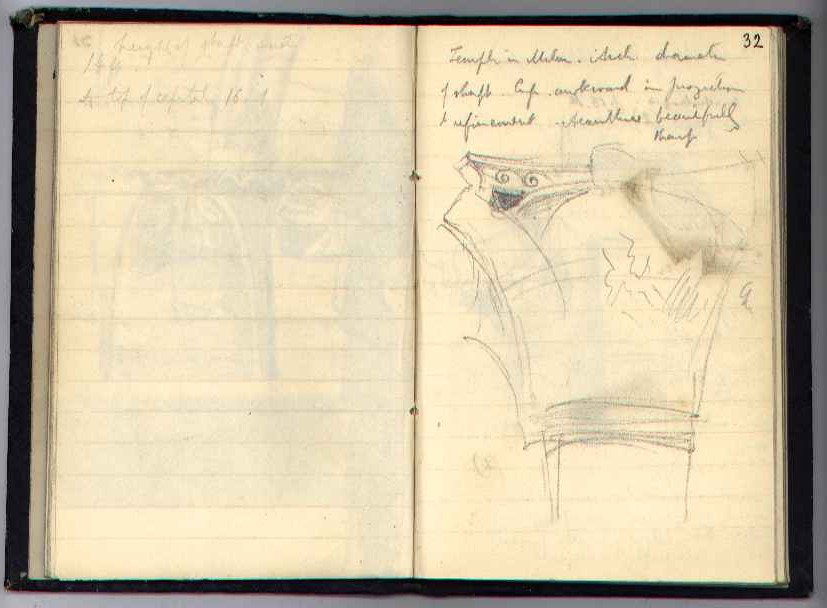 height of shaft
14 4
to top of capital 16. 1
32
Temple in Milan. diameter
of shaft. Cap. awkward in projection
& refinement. Acanthus beautifully
sharp